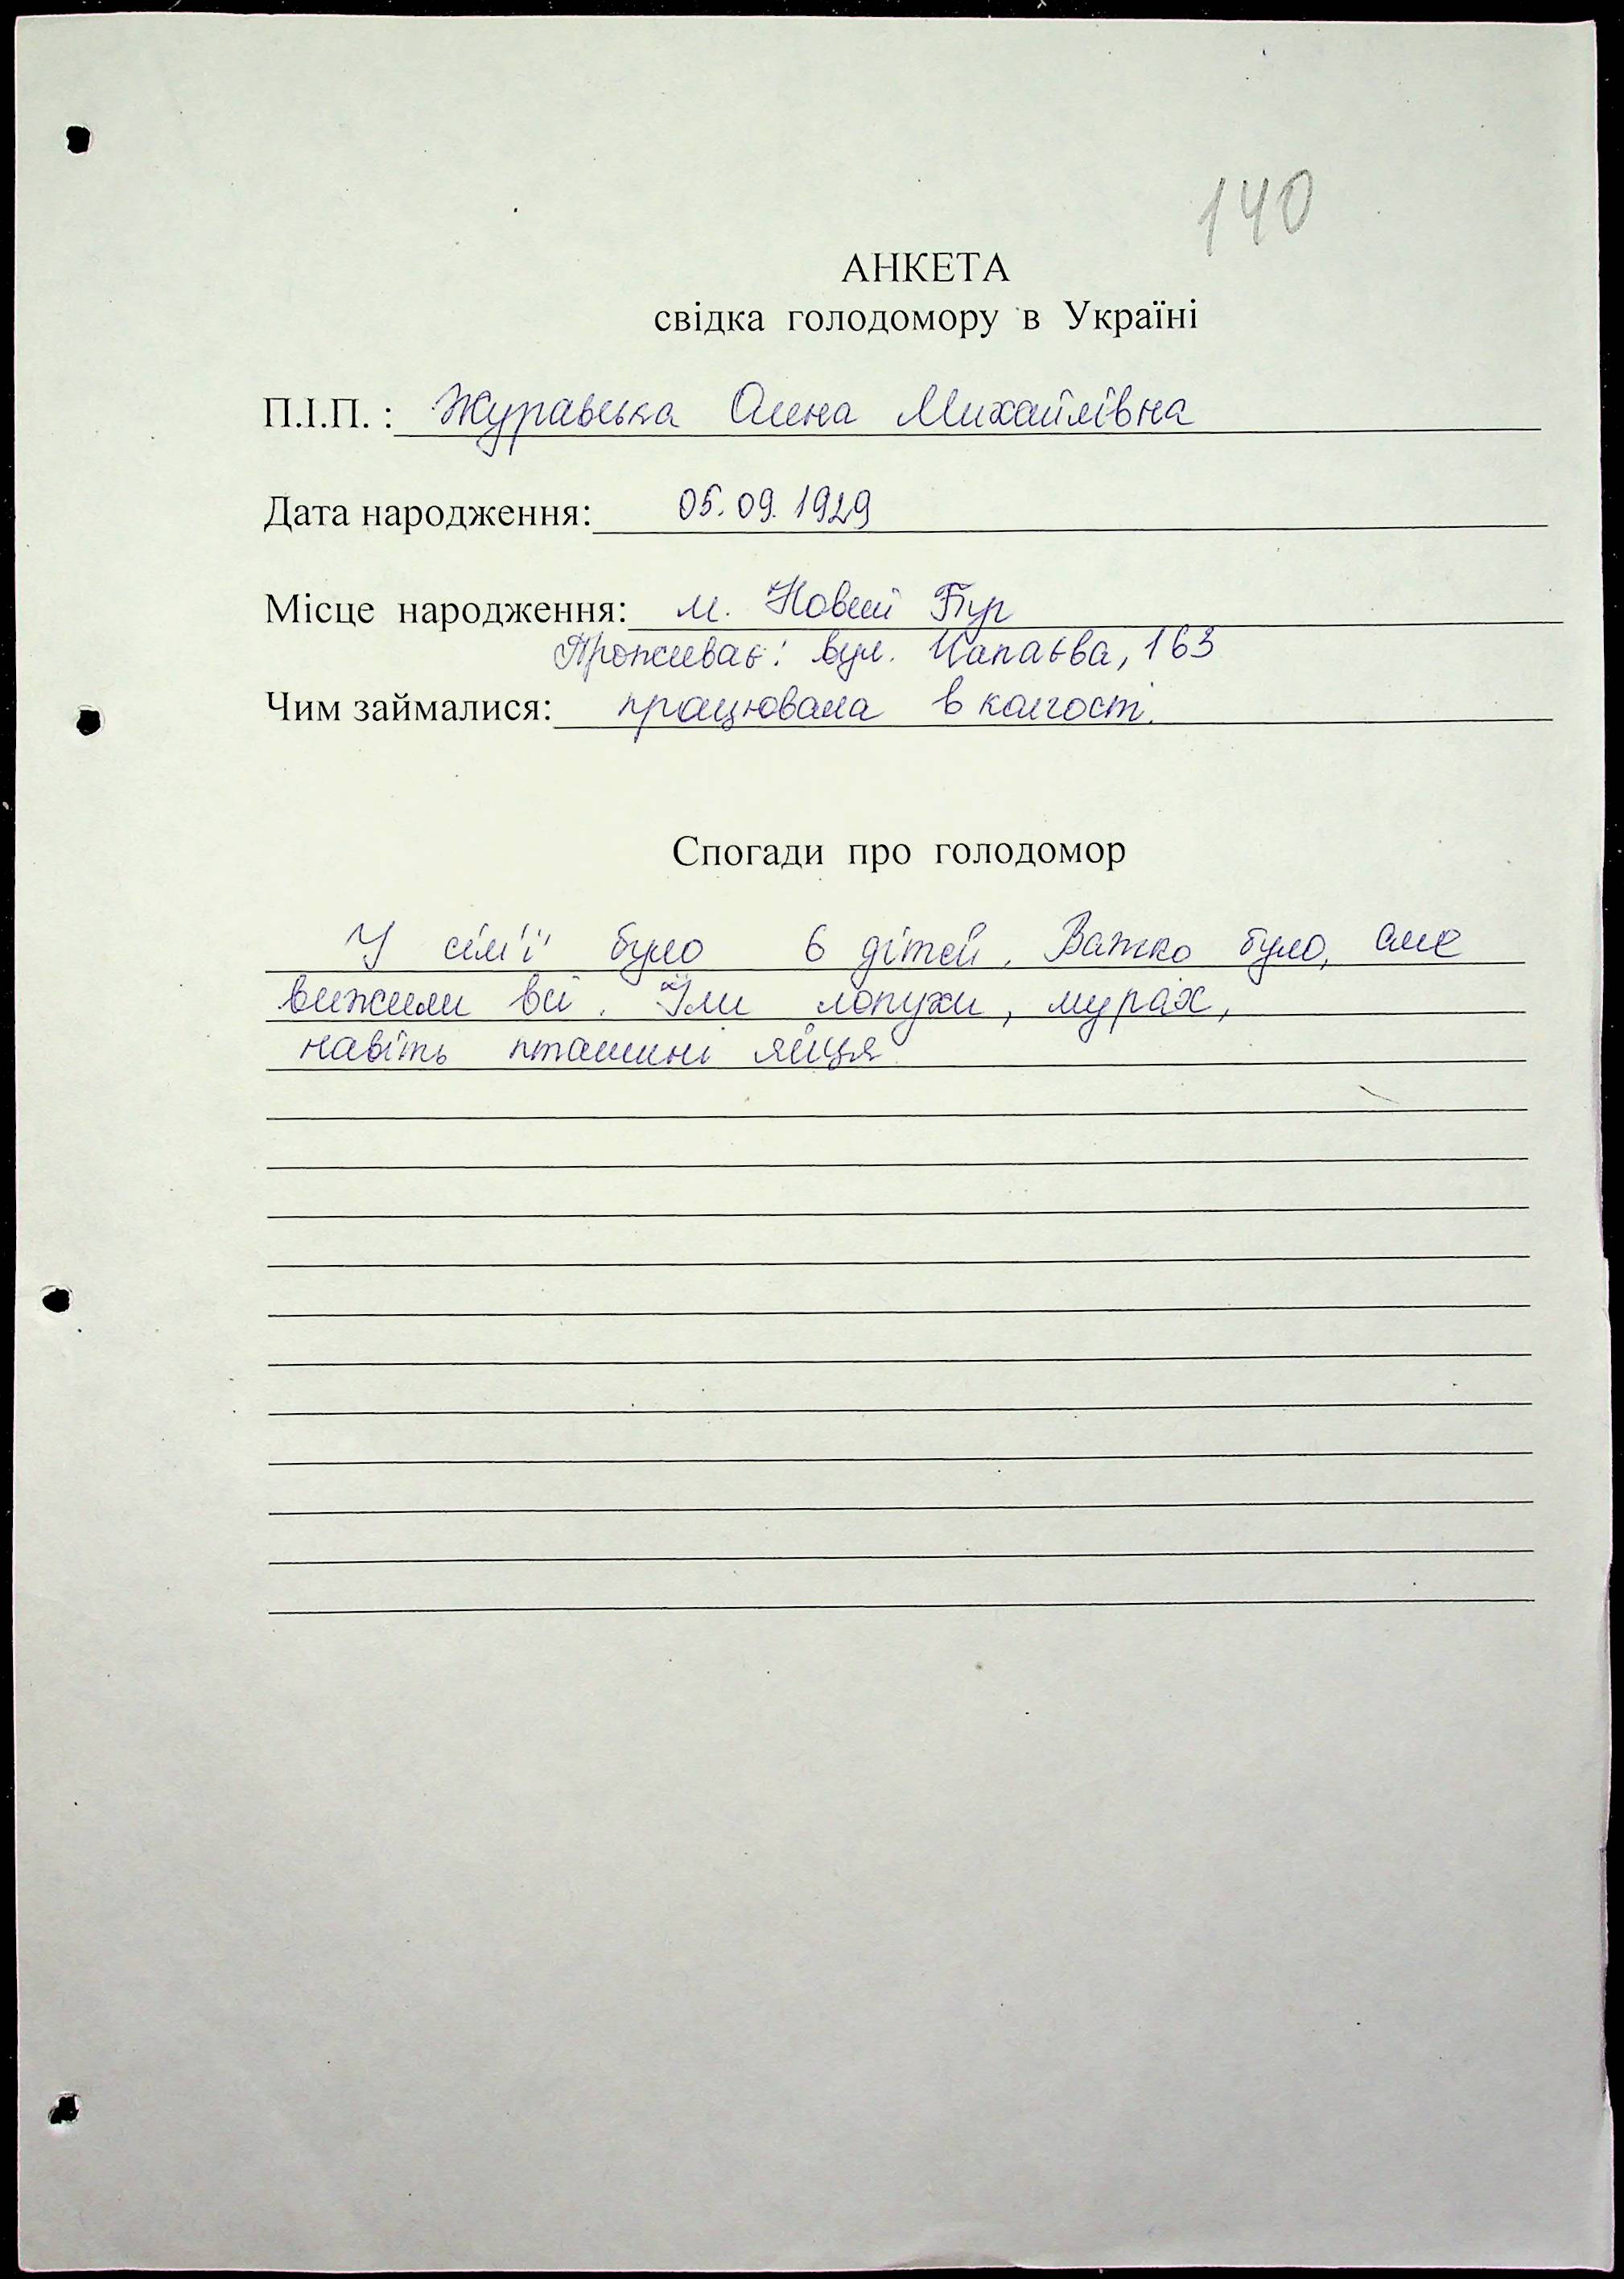 140
АНКЕТА
свідка голодомору в Україні
П.І.П. : Журавська Олена Михайлівна
Дата народження: 05.09.1929
Місце народження: м. Новий Буг
Проживає: вул. Чапаєва, 163
Чим займалися: працювала в колгоспі.
Спогади про голодомор
У сім'ї було 6 дітей. Важко було, але
вижили всі. Їли лопухи, мурах,
навіть пташині яйця.